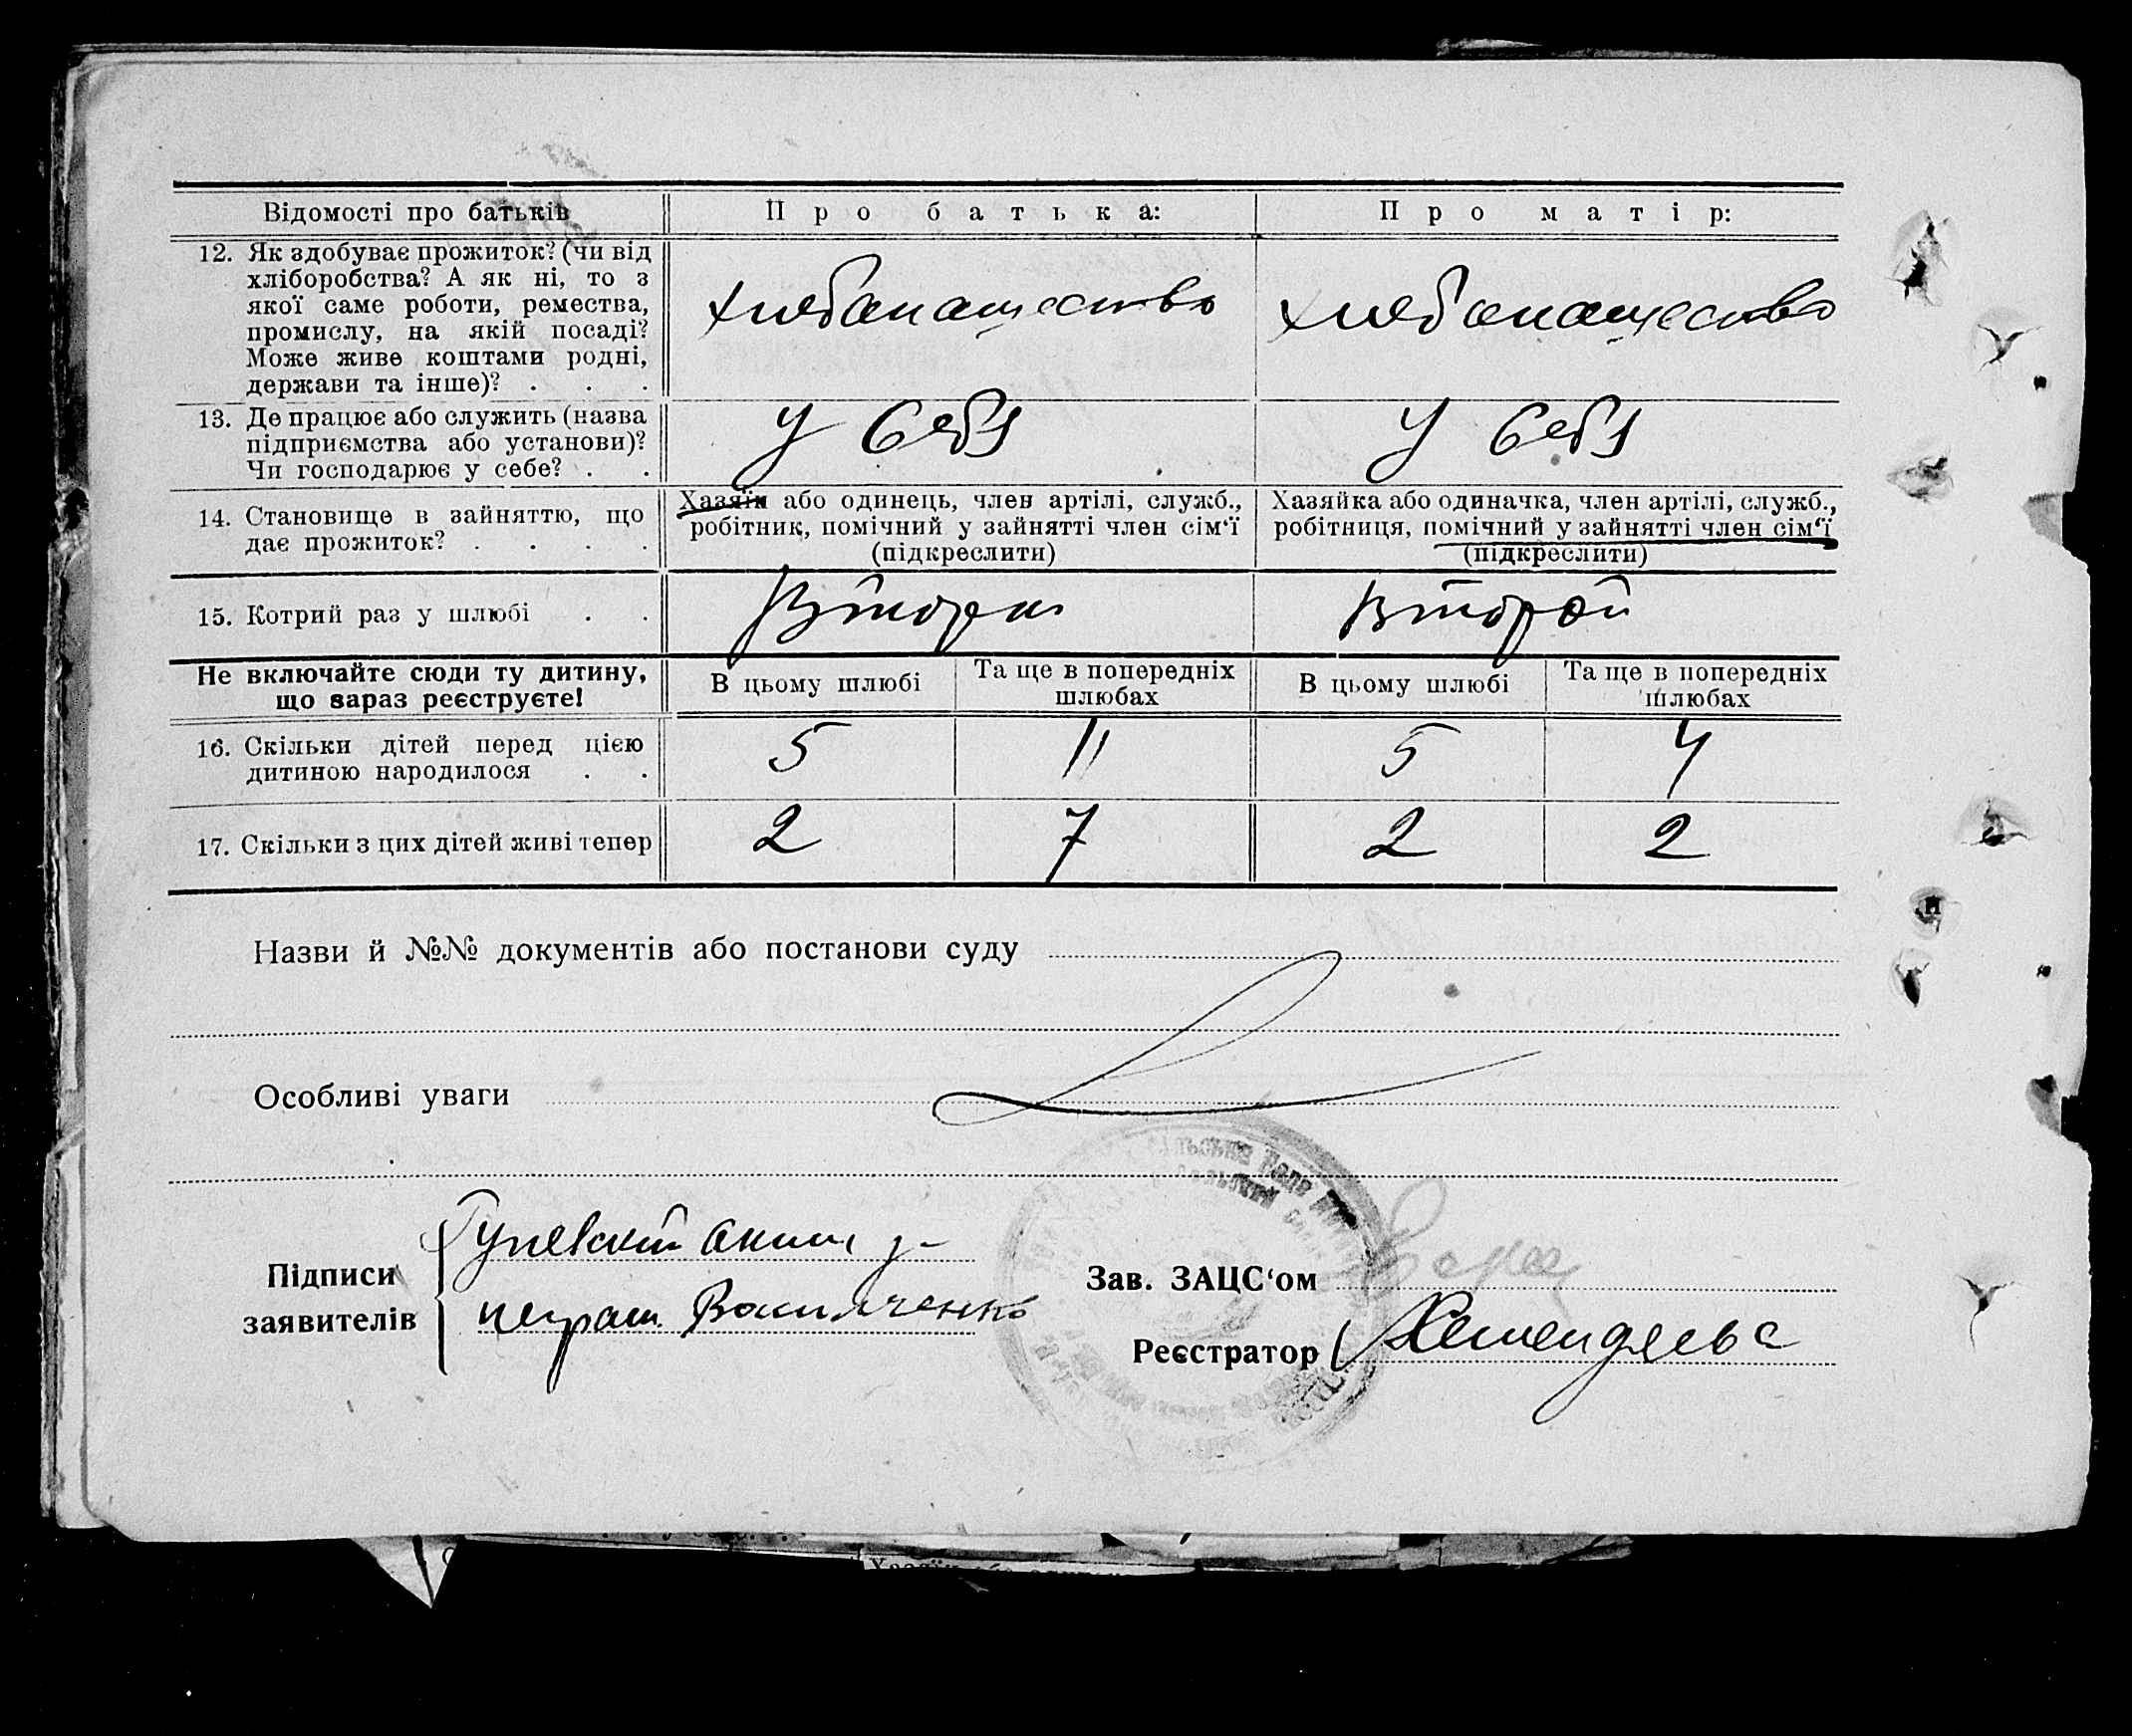 Відомості про батьків
Про батька:
Про матір:
12. Як здобуває прожиток? (чи від
хліборобства? А як ні, то з
якої саме роботи, ремества,
промислу, на якій посаді?
Може живе коштами родні,
держави та інше)? . . .
хлебапащество
хлебапащество
13. Де працює або служить (назва
підприємства або установи)?
Чи господарює у себе? . .
у себя
у себя
14. Становище в зайняттю, що
дає прожиток? . . . .
Хазяїн або одинець, член артілі, служб.,
робітник, помічний у зайнятті член сім‘ї
(підкреслити)
Хазяйка або одиначка, член артілі, служб.,
робітниця, помічний у зайнятті член сім‘ї
(підкреслити)
15. Котрий раз у шлюбі . .
Второй
Не включайте сюди ту дитину,
що зараз реєструєте!
В цьому шлюбі
Та ще в попередніх
шлюбах
В цьому шлюбі
Та ще в попередніх
шлюбах
16. Скільки дітей перед цією
дитиною народилося . .
5
11
5
4
17. Скільки з цих дітей живі тепер
2
7
2
2
Назви й №№ документів або постанови суду
Особливі уваги
Підписи
заявителів
Василченко
Зав. ЗАЦС‘ом
Реєстратор